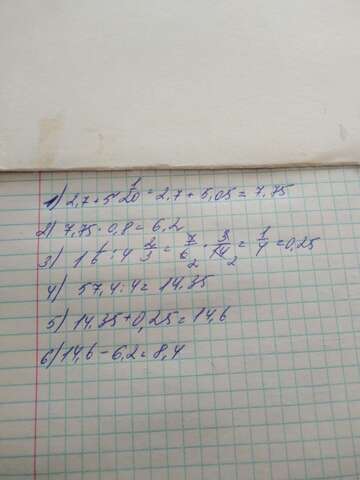 1) 2,7 + 5 1/20 = 2,7 + 5,05 = 7,75
2) 7,75 · 0,8 = 6,2
3) 1 1/6 : 4 2/3 = 7/6 · 3/14 = 1/4 = 0,25
4) 57,4 : 4 = 14,35
5) 14,35 + 0,25 = 14,6
6) 14,6 - 6,2 = 8,4